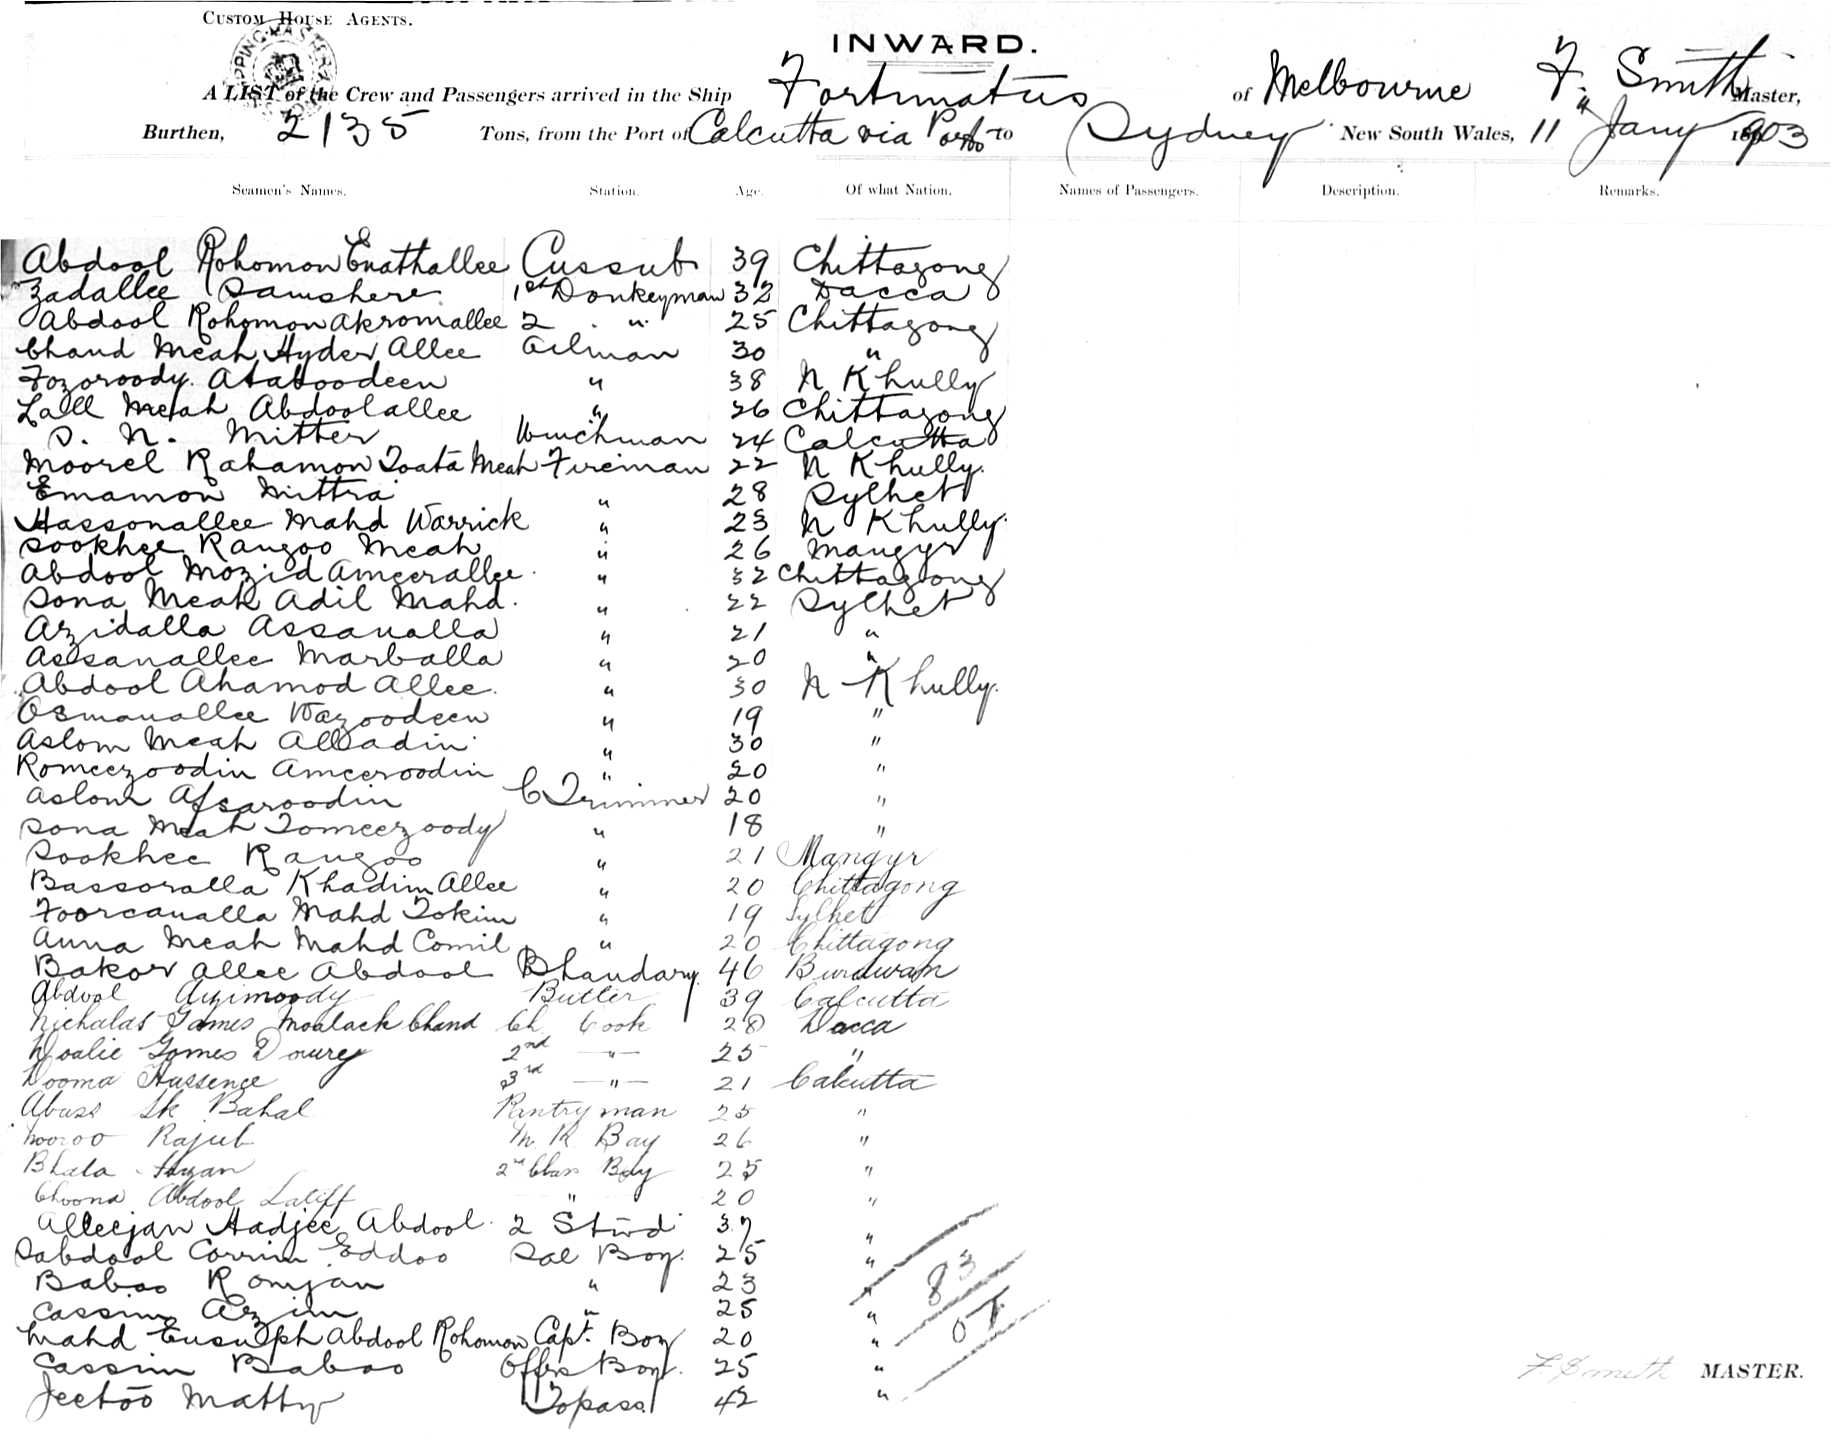 CUSTOM HOUSE AGENTS.
INWARD.
A LIST of the Crew and Passengers arrived in the Ship Fortunatus of Melbourne F. Smith Master,
Burthen, 2135 Tons, from the Port of Calcutta via Ports to Sydney New South Wales, 11" Jany 1903
Seamen's Names. Station. Age. Of what Nation. Names of Passengers. Description. Remarks.
Abdool Rohomon Enathallee Cussub 39 Chittagong
Zadallee Samshere 1st Donkeyman 32 Dacca
Abdool Rohomon Akromallee 2 " 25 Chittagong
Chand Meah Hyder Allee Oilman 30 "
Fozoroody Ataboodeen " 38 N Khully
Lall Meah Abdoolallee " 26 Chittagong
S. N. Mitter Winchman 24 Calcutta
Moorel Rahamon Toata Meah Fireman 22 N Khully.
Emamon Mittra " 28 Sylhet
Hassonallee Mahd Warrick " 23 N Khully.
Sookhee Rangoo Meah " 26 Mangyr
Abdool Mozid Ameerallee " 32 Chittagong
Sona Meah Adil Mahd. " 22 Sylhet
Azidalla Assanalla " 21 "
Assanallee Marballa " 20 "
Abdool Ahamod Allee. " 30 N Khully.
Osmanallee Wazoodeen " 19 "
Aslom Meah Alladin " 30 "
Romeezoodin Ameeroodin " 20 "
Aslom Afsaroodin C Trimmer 20 "
Sona Meah Tomeezoody " 18 "
Sookhee Rangoo " 21 Mangyr
Bassoralla Khadim Allee " 20 Chittagong
Foorcanalla Mahd Tokim " 19 Sylhet
Anna Meah Mahd Comil " 20 Chittagong
Bakor Allee Abdool Bhandary. 46 Burdwan
Abdool Azimoody Butler 39 Calcutta
Nichalas Gomes Moolack Chand Ch. Cook 28 Dacca
Doalie Gomes Dourey 2nd —"— 25 "
Dooma Hussenee 3rd —"— 21 Calcutta
Abass Sk Bahal Pantryman 25 "
Nooroo Rajub M R Boy 26 "
Bhala 2nd Class Boy 25 "
Choona Abdool Latiff " 20 "
Alleejan Hadjee Abdool 2 Stwd 37 "
Sabdool Corrim Eddoo Sal Boy. 25 "
Baboo Romjan " 23 "
Cassim Azim " 25 "
Mahd Eusulph Abdool Rohomon Capt. Boy 20 "
Cassim Baboo Offrs Boy. 25 "
Jeetoo Matty Topass 42 "
83
F. Smith MASTER.